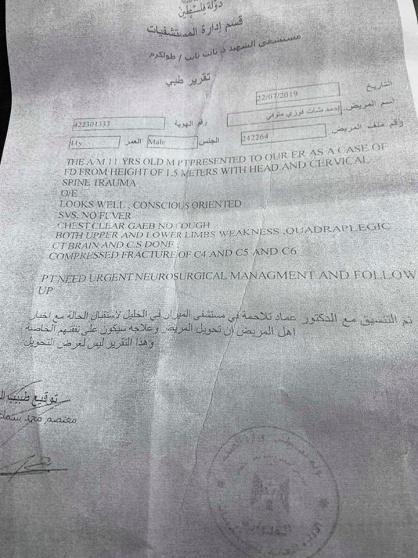 دولة فلسطين
قسم إدارة المستشفيات
مستشفى الشهيد د. ثابت ثابت / طولكرم
تقرير طبي
التاريخ 22/07/2019
اسم المريض
رقم الهوية 422301333
رقم ملف المريض 242264
الجنس Male
العمر 11y
THE A M 11 YRS OLD M PT PRESENTED TO OUR ER AS A CASE OF
FD FROM HEIGHT OF 1.5 METERS WITH HEAD AND CERVICAL
SPINE TRAUMA
O/E
LOOKS WELL , CONSCIOUS ORIENTED
SVS, NO FEVER
CHEST CLEAR GAEB NO COUGH
BOTH UPPER AND LOWER LIMBS WEAKNESS ,QUADRAPLEGIC
CT BRAIN AND C.S DONE ,
COMPRESSED FRACTURE OF C4 AND C5 AND C6
PT NEED URGENT NEUROSURGICAL MANAGMENT AND FOLLOW
UP
تم التنسيق مع الدكتور عماد تلاحمة في مستشفى الميزان في الخليل لاستقبال الحالة مع اخبار
اهل المريض ان تحويل المريض وعلاجه سيكون على نفقتهم الخاصة
وهذا التقرير ليس لغرض التحويل
توقيع طبيب
معتصم محمد